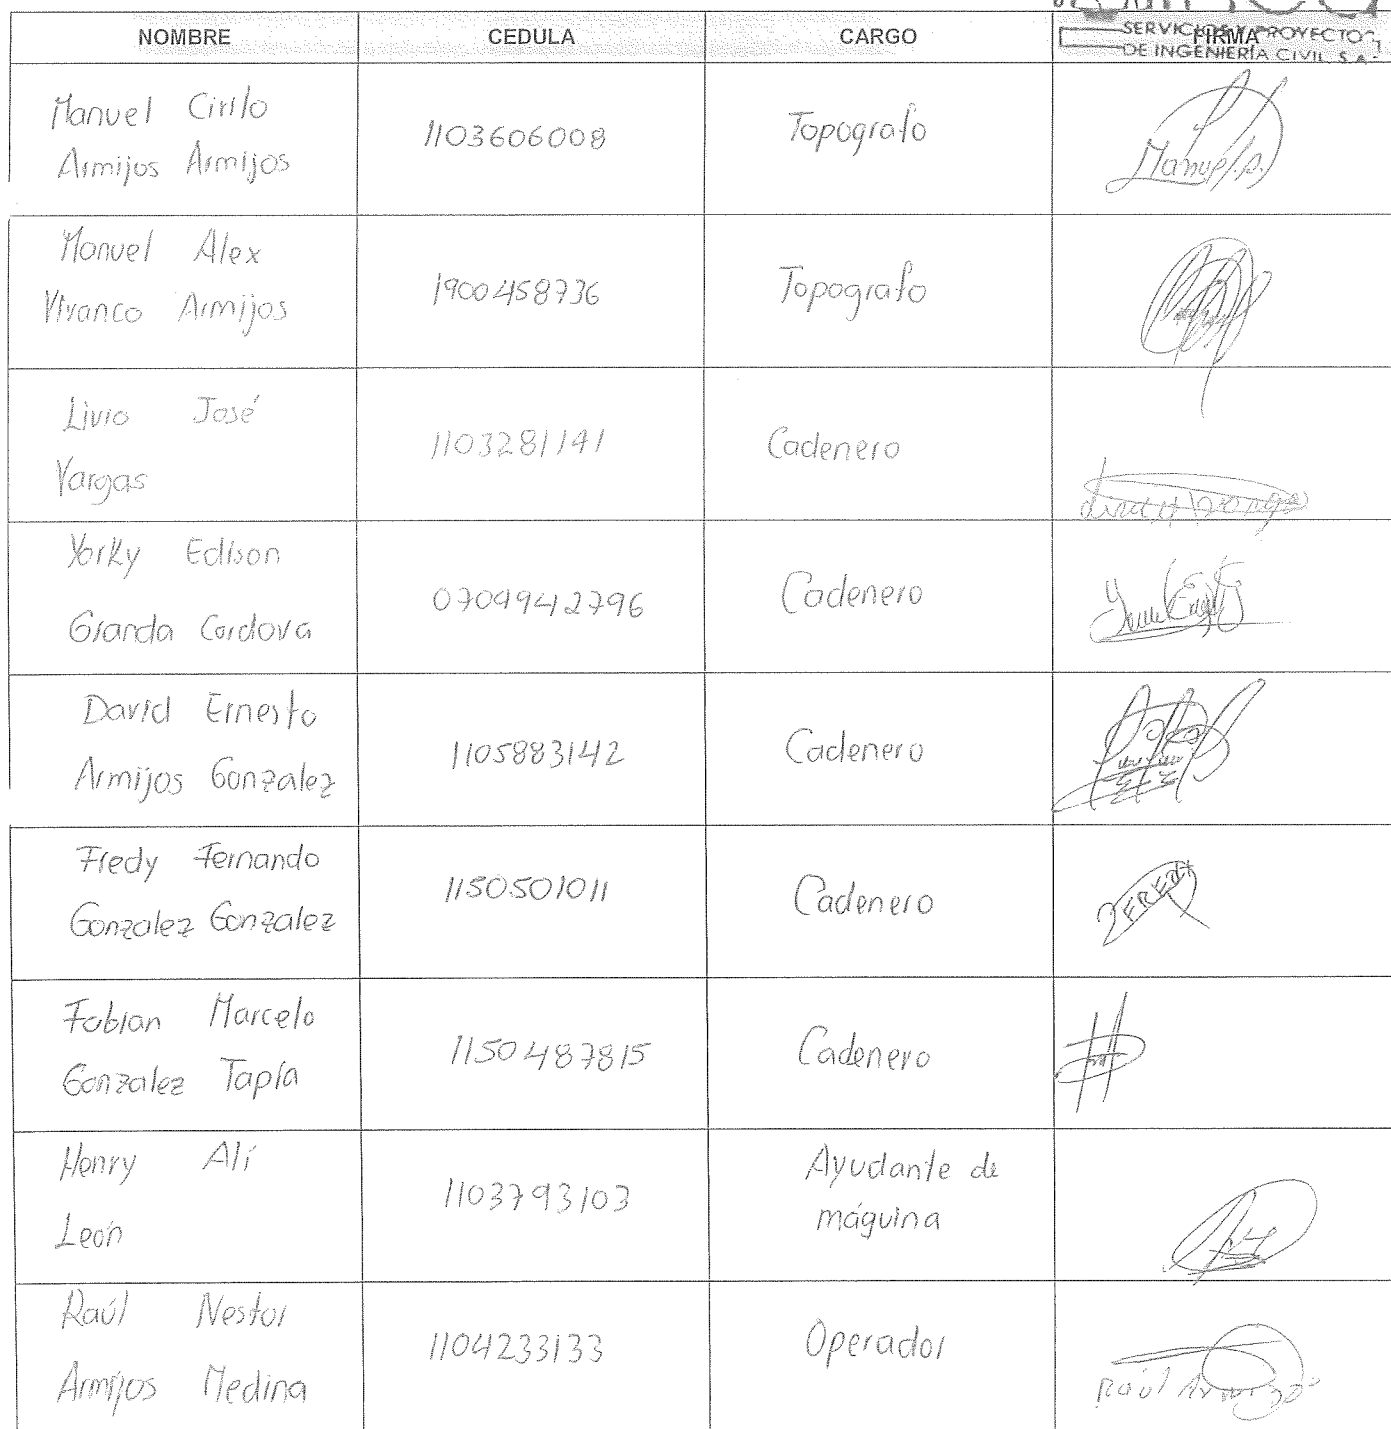 NOMBRE CEDULA CARGO FIRMA
SERVICIOS Y PROYECTOS
DE INGENIERÍA CIVIL S.A.
Manuel Cirilo
Armijos Armijos
1103606008
Topografo
Manuel.A.
Manuel Alex
Vivanco Armijos
1900458736
Topografo
Livio José
Vargas
1103281141
Cadenero
Yorky Edison
Granda Cordova
0709942796
Cadenero
David Ernesto
Armijos Gonzalez
1105883142
Cadenero
Fredy Fernando
Gonzalez Gonzalez
1150501011
Cadenero
Fabian Marcelo
Gonzalez Tapia
1150487815
Cadenero
Henry Alí
León
1103793103
Ayudante de
máquina
Raúl Nestor
Armijos Medina
1104233133
Operador
Raúl